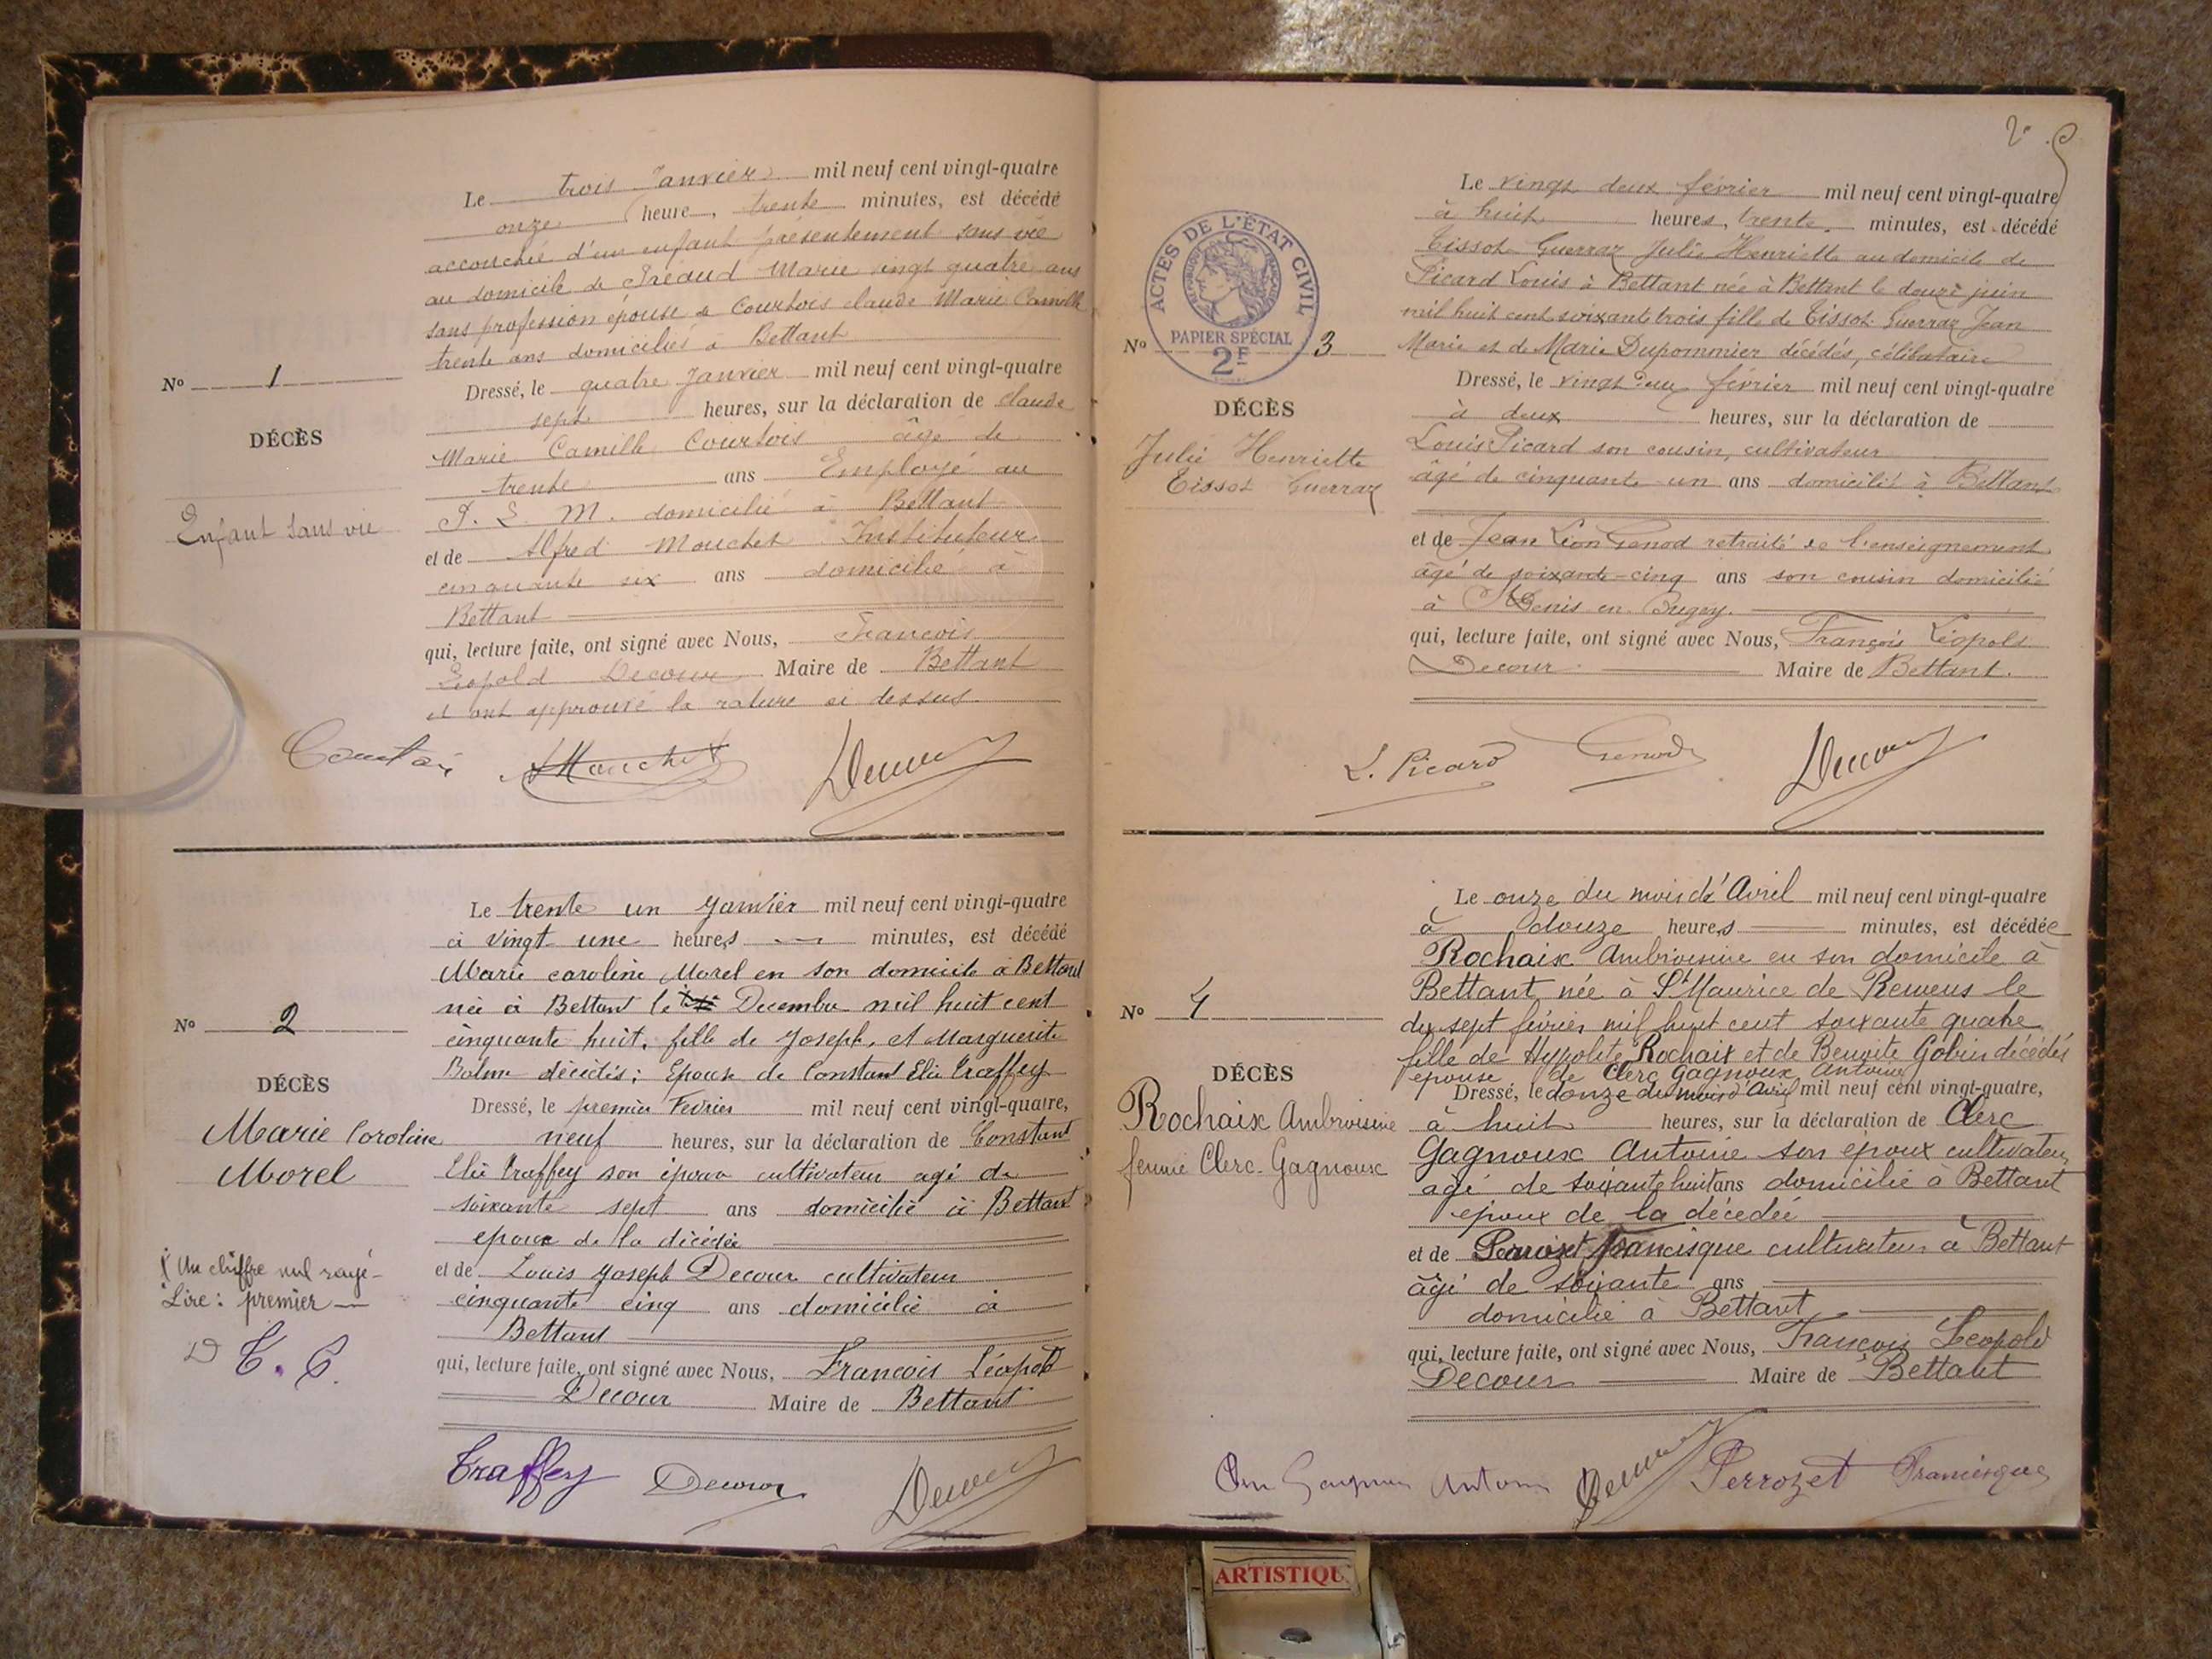 Le trois Janvier mil neuf cent vingt-quatre
onze heure, trente minutes, est décédé
accouchée d'un enfant présentement sans vie
au domicile de Préaud Marie vingt quatre ans
sans profession épouse de Courtois claude Marie Camille
trente ans domiciliés à Bettant
Nº 1
DÉCÈS
Enfant sans vie
Dressé, le quatre Janvier mil neuf cent vingt-quatre
sept heures, sur la déclaration de claude
Marie Camille Courtois âgé de
trente ans Employé au
P. L. M. domicilié à Bettant
et de Alfred Mouchet Instituteur
cinquante six ans domicilié à
Bettant
qui, lecture faite, ont signé avec Nous, Francois
Léopold Decour Maire de Bettant
et ont approuvé la rature ci dessus.
Courtois AMouchet Decour
Le trente un Janvier mil neuf cent vingt-quatre
à vingt une heures minutes, est décédé
Marie caroline Morel en son domicile à Bettant
née à Bettant le Decembre mil huit cent
cinquante huit, fille de Joseph, et Marguerite
décédés; Epouse de Constant Elie Traffey
Nº 2
DÉCÈS
Marie Caroline
Morel
X Un chiffre nul rayé
Lire: premier
D T. C.
Dressé, le premier Fevrier mil neuf cent vingt-quatre,
neuf heures, sur la déclaration de Constant
Elie Traffey son époux cultivateur agé de
soixante sept ans domicilié à Bettant
epoux de la décédée
et de Louis Joseph Decour cultivateur
cinquante cinq ans domicilié à
Bettant
qui, lecture faite, ont signé avec Nous, Francois Léopold
Decour Maire de Bettant
Traffey Decour Decour
2
Le vingt deux février mil neuf cent vingt-quatre
à huit heures, trente minutes, est décédé
Tissot Guerraz Julie Henriette au domicile de
Picard Louis à Bettant née à Bettant le douze juin
mil huit cent soixante trois fille de Tissot Guerraz Jean
Marie et de Marie Dupommier décédés, célibataire
ACTES DE L'ÉTAT CIVIL
RÉPUBLIQUE FRANÇAISE
PAPIER SPÉCIAL
2F
Nº 3
DÉCÈS
Julie Henriette
Tissot Guerraz
Dressé, le vingt deux février mil neuf cent vingt-quatre
à deux heures, sur la déclaration de
Louis Picard son cousin, cultivateur
âgé de cinquante un ans domicilié à Bettant
et de Jean Léon Genod retraité de l'enseignement
âgé de soixante-cinq ans son cousin domicilié
à St Denis en Bugey.
qui, lecture faite, ont signé avec Nous, François Léopold
Decour Maire de Bettant.
L. Picard Genod Decour
Le onze du mois d'Avril mil neuf cent vingt-quatre
à douze heures minutes, est décédée
Rochaix Ambroisine en son domicile à
Bettant née à St Maurice de Remens le
dix sept février mil huit cent soixante quatre
fille de Hyppolite Rochaix et de Benoite Gobin décédés
épouse de Clerc Gagnoux Antoine
Nº 4
DÉCÈS
Rochaix Ambroisine
femme Clerc-Gagnoux
Dressé, le douze du mois d'Avril mil neuf cent vingt-quatre,
à huit heures, sur la déclaration de Clerc
Gagnoux Antoine son époux cultivateur
agé de soixante huit ans domicilié à Bettant
époux de la décédée
et de Perrozet francisque cultivateur à Bettant
âgé de soixante ans
domicilié à Bettant
qui, lecture faite, ont signé avec Nous, François Leopold
Decour Maire de Bettant
Antoine Decour Perrozet Francisque
ARTISTIQU